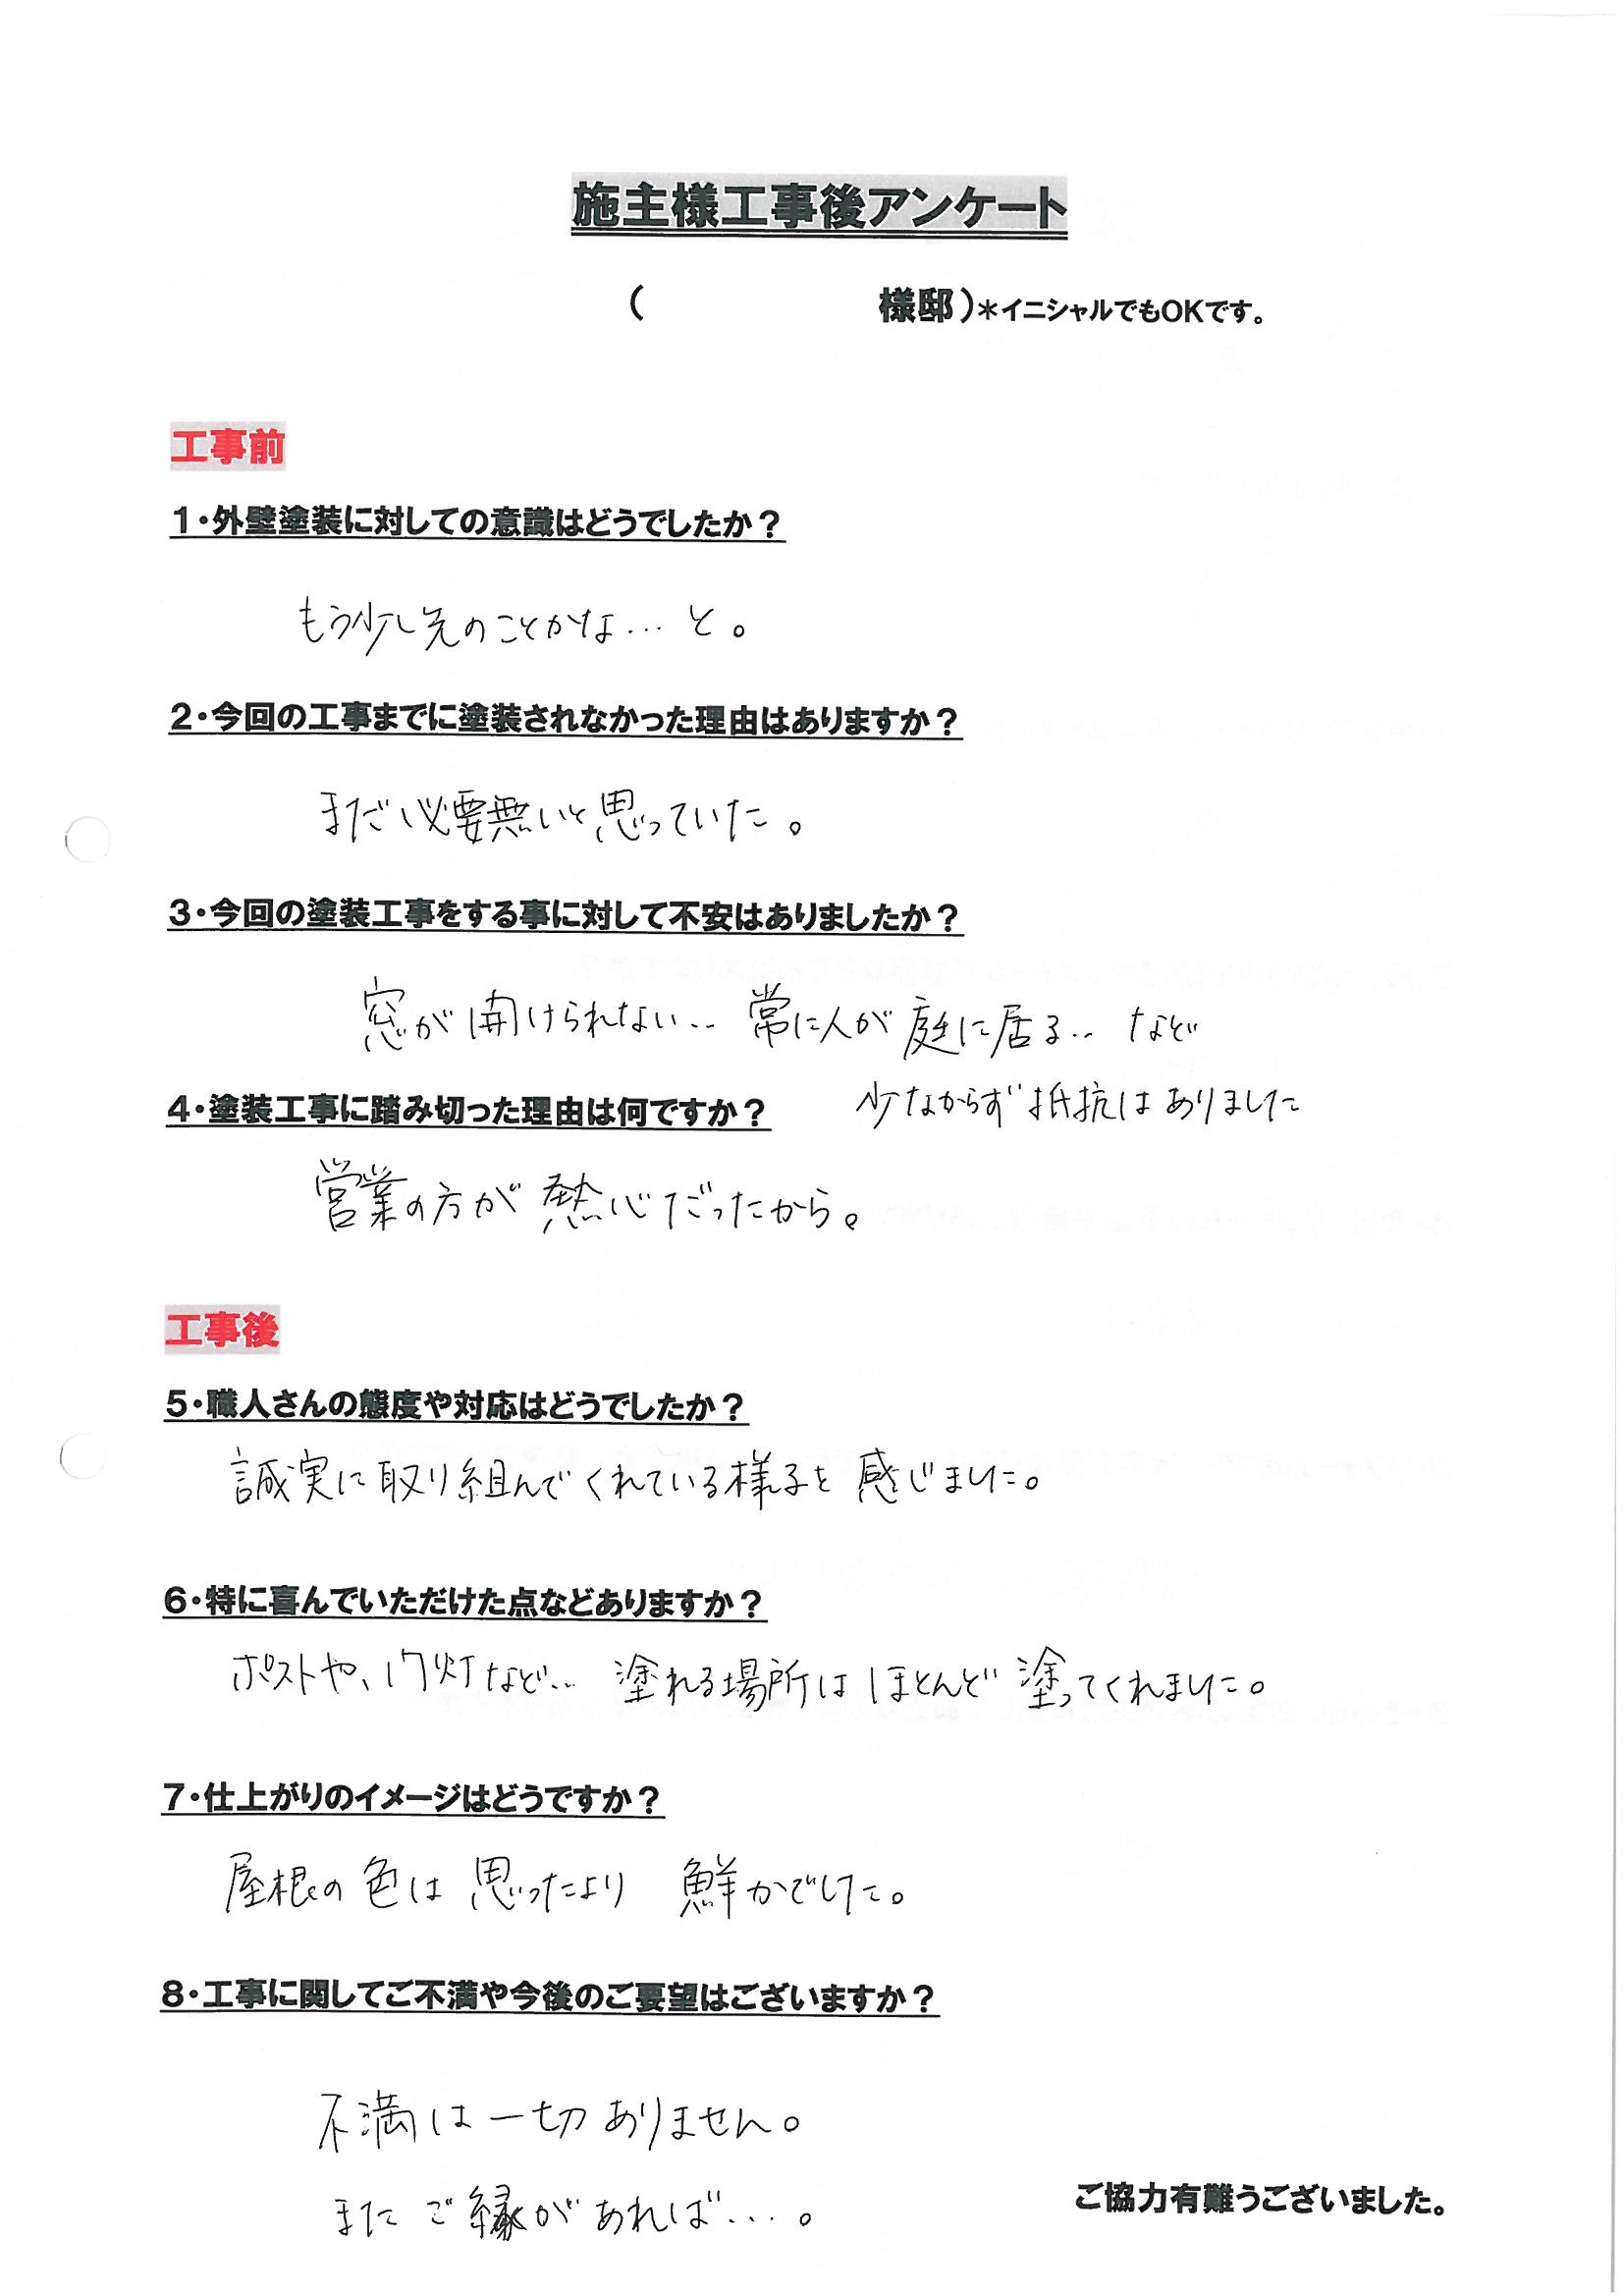 施主様工事後アンケート
(　　　　　様邸)*イニシャルでもOKです。
工事前
1・外壁塗装に対しての意識はどうでしたか?
もう少し先のことかな… と。
2・今回の工事までに塗装されなかった理由はありますか?
まだ必要無いと思っていた。
3・今回の塗装工事をする事に対して不安はありましたか?
窓が開けられない‥ 常に人が庭に居る‥ など
少なからず抵抗はありました
4・塗装工事に踏み切った理由は何ですか?
営業の方が熱心だったから。
工事後
5・職人さんの態度や対応はどうでしたか?
誠実に取り組んでくれている様子を感じました。
6・特に喜んでいただけた点などありますか?
ポストや、門灯など… 塗れる場所はほとんど塗ってくれました。
7・仕上がりのイメージはどうですか?
屋根の色は思ったより 鮮かでした。
8・工事に関してご不満や今後のご要望はございますか?
不満は一切ありません。
またご縁があれば…。
ご協力有難うございました。